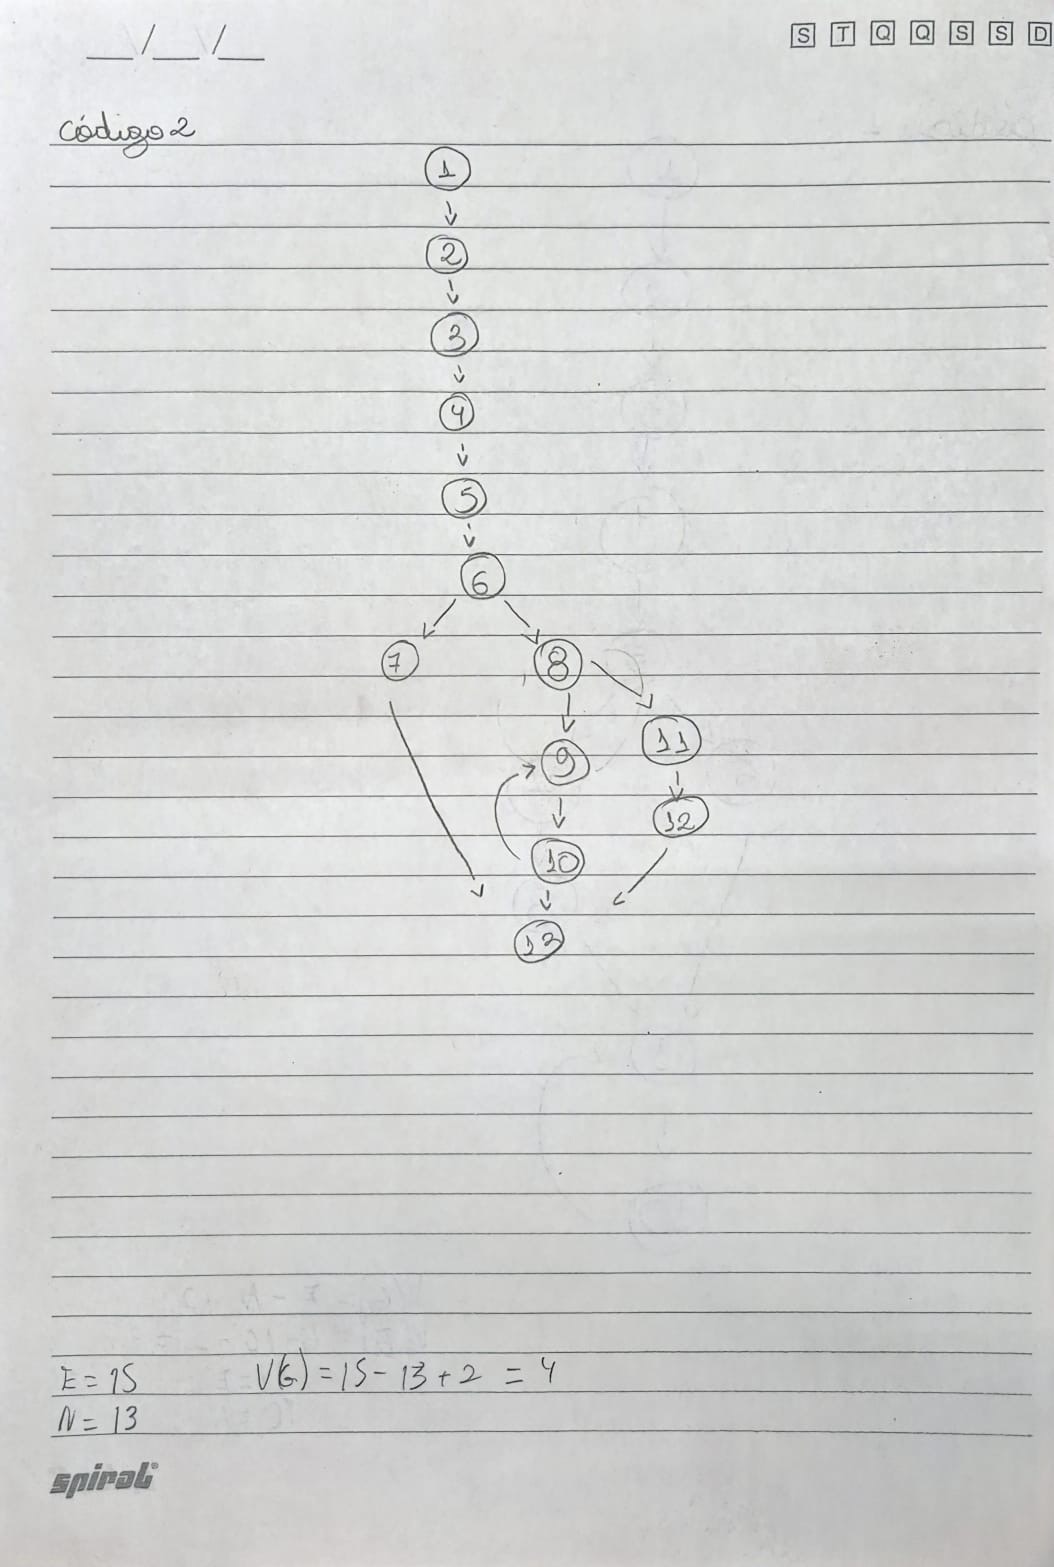 S T Q Q S S D
código 2
1
2
3
4
5
6
7 8
9 11
10 12
13
E = 15 V(G) = 15 - 13 + 2 = 4
N = 13
spiral®